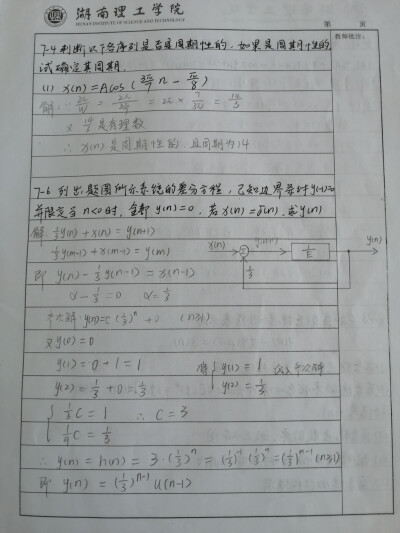 湖南理工学院
HUNAN INSTITUTE OF SCIENCE AND TECHNOLOGY
第 页
教师批注:
7-4 判断以下各序列是否是周期性的,如果是周期性的
试确定其周期.
(1) x(n)=Acos(3π/7 n - π/8)
解: ∵ 2π/ω = 2π/(3π/7) = 2π × 7/3π = 14/3
又 14/3 是有理数
∴ x(n)是周期性的,且周期为14
7-6 列出题图所示系统的差分方程,已知边界条件y(-1)=0
并限定当n<0时,全部y(n)=0,若x(n)=δ(n),求y(n)
解 1/3 y(n) + x(n) = y(n+1)
1/3 y(n-1) + x(n-1) = y(n)
x(n) Σ y(n+1) 1/E y(n)
1/3
即 y(n) - 1/3 y(n-1) = x(n-1)
α - 1/3 = 0 α = 1/3
y(n)=C(1/3)^n + 0 (n≥1)
又 y(0)=0
y(1) = 0+1 = 1
y(2) = 1/3 + 0 = 1/3
将 { y(1) = 1
y(2) = 1/3
{ 1/3 C = 1 ∴ C = 3
1/9 C = 1/3
∴ y(n) = h(n) = 3·(1/3)^n = (1/3)^-1 (1/3)^n = (1/3)^n-1 (n≥1)
即 y(n) = (1/3)^n-1 u(n-1)